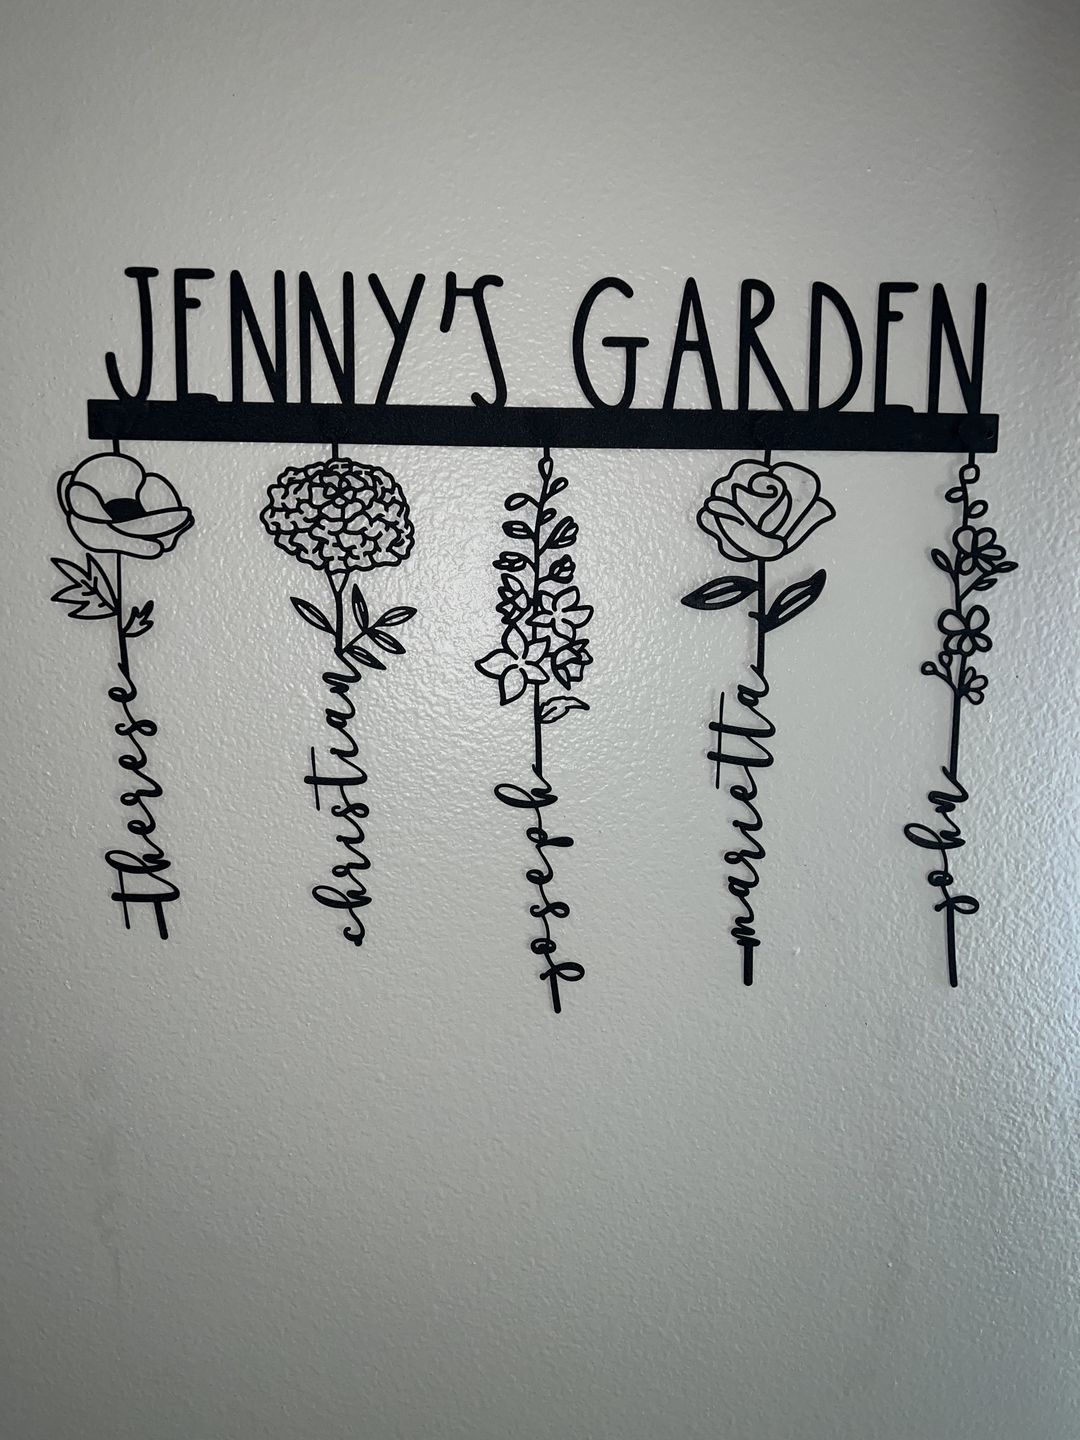 JENNY'S GARDEN
therese
christian
joseph
marietta
john